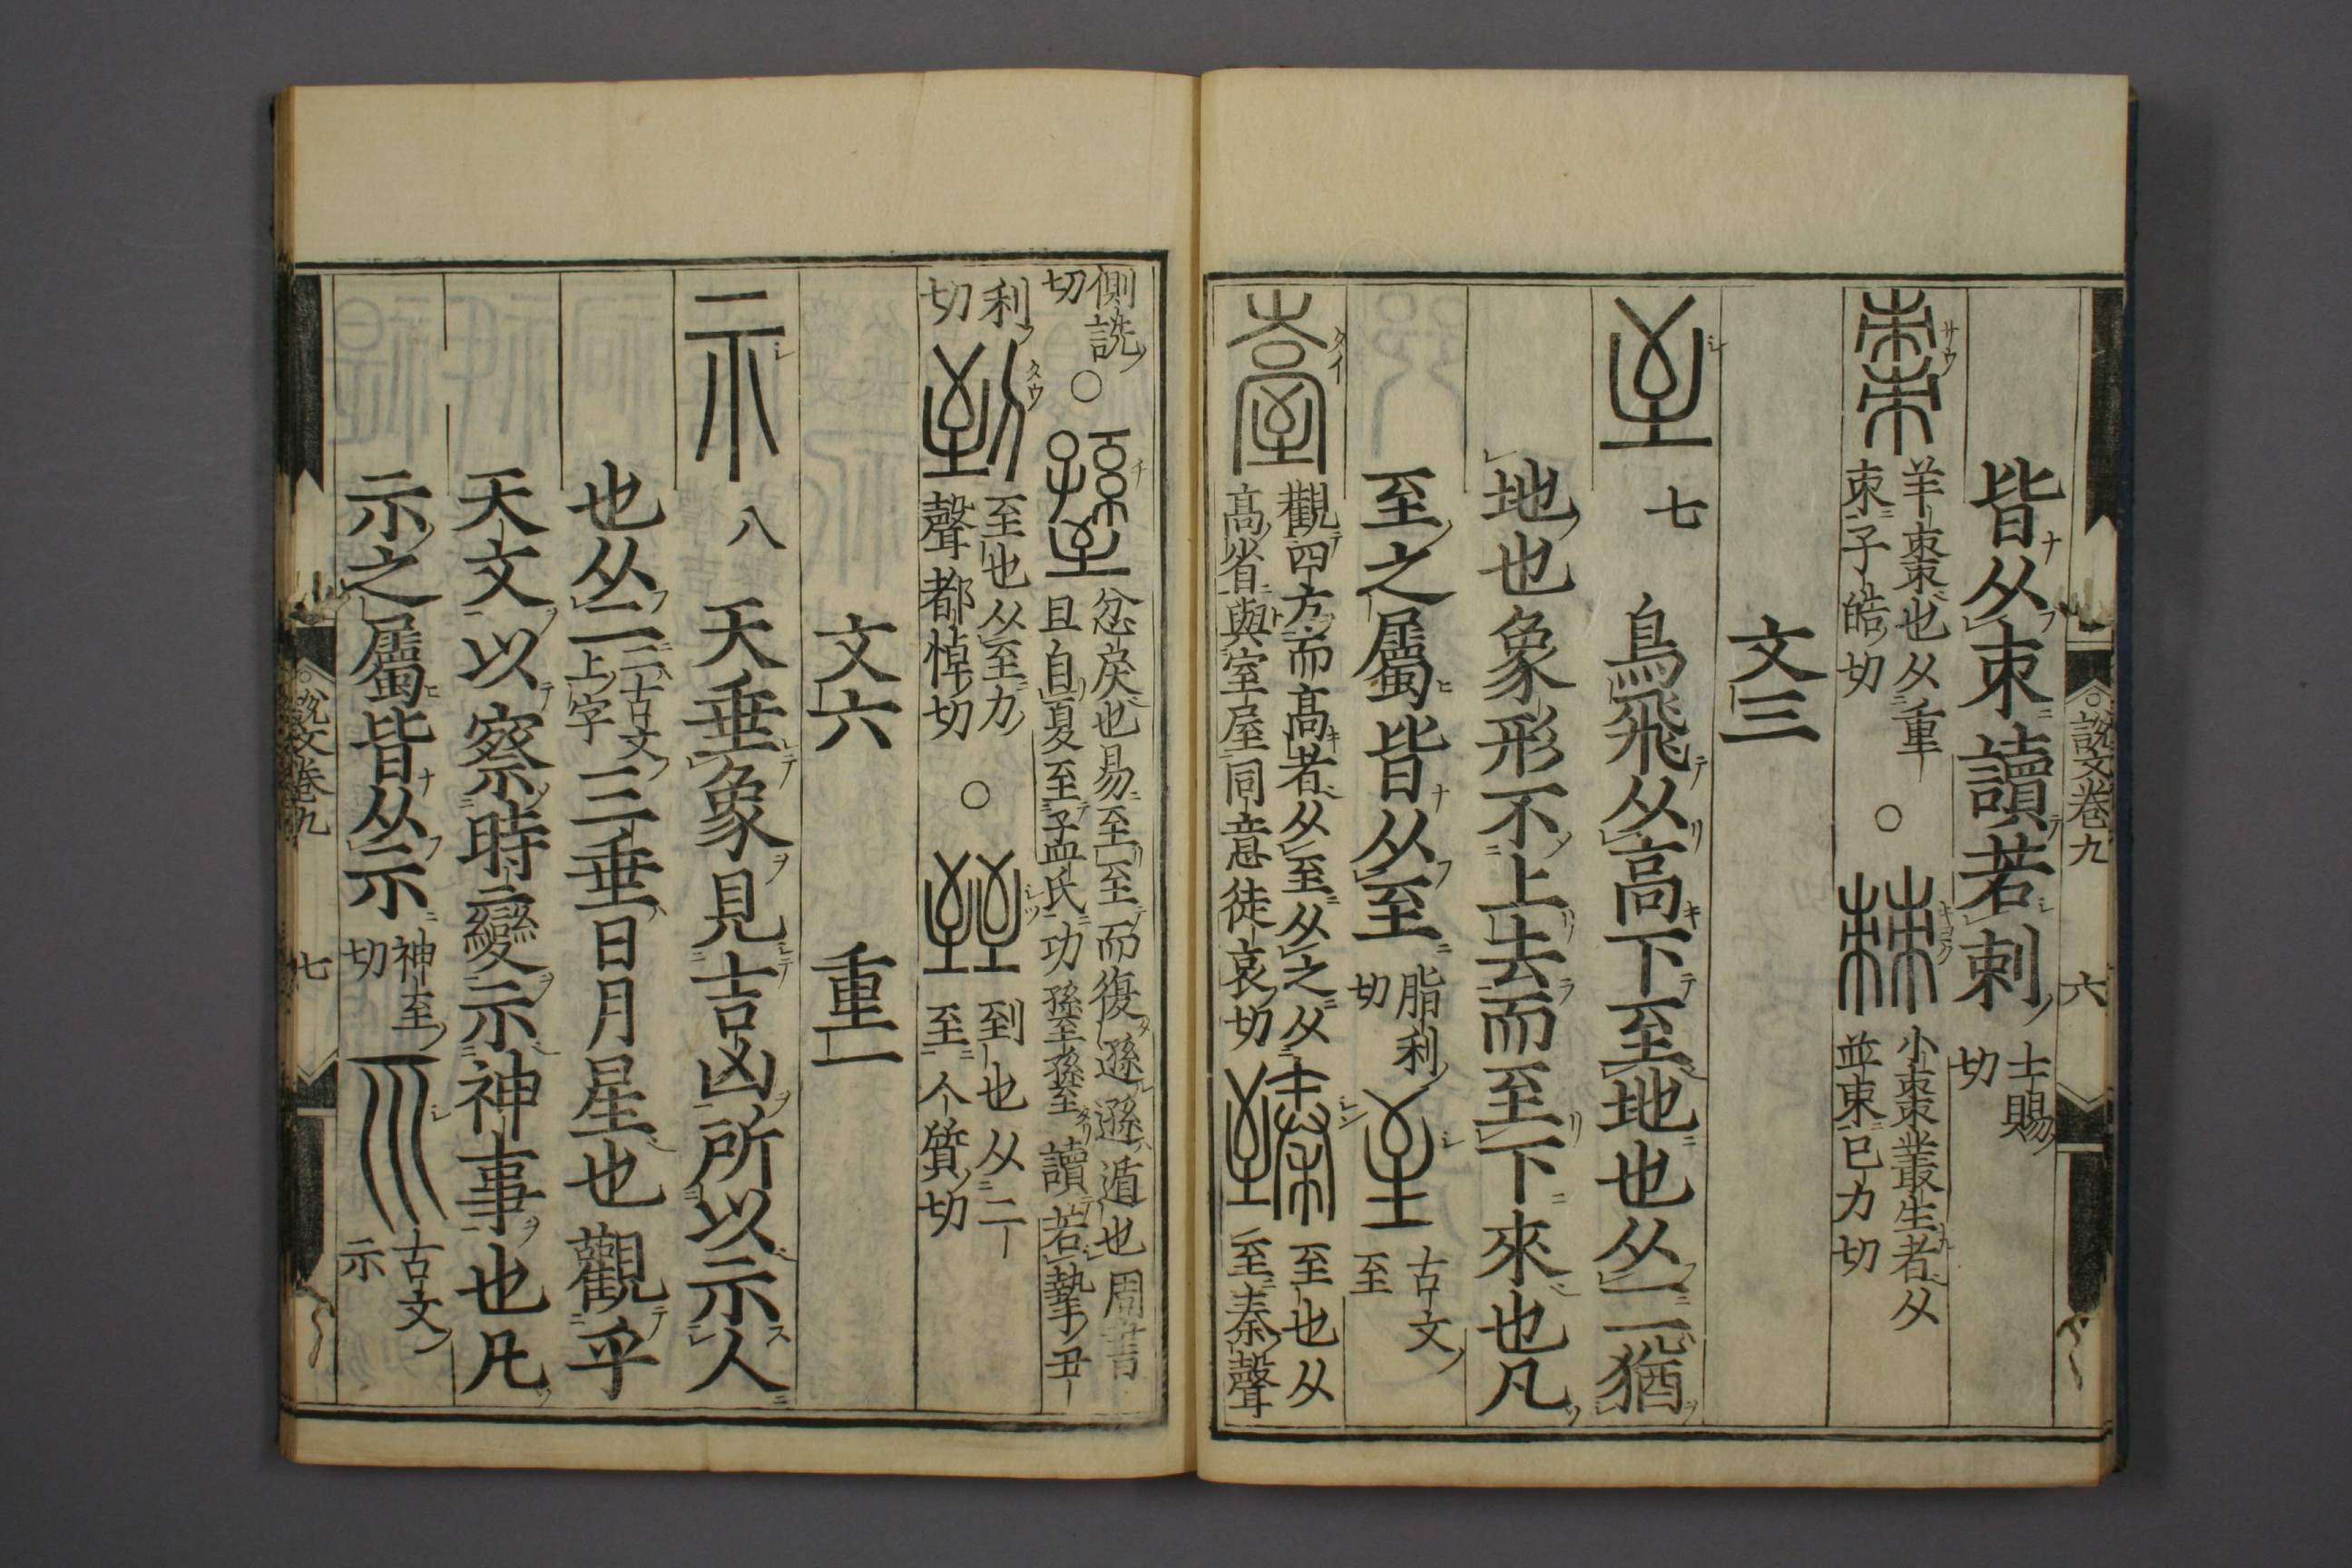 說文卷九 六
皆从朿讀若刺 士賜切
棗 羊棗也从重朿子皓切 ○ 棘 小棗叢生者从並朿已力切
文三
至 七 鳥飛从高下至地也从一一猶
地也象形不上去而至下來也凡
至之屬皆从至 脂利切 𦤳 古文至
臺 觀四方而高者从至从之从高省與室屋同意徒哀切 臻 至也从至秦聲
側詵切 ○ 忿戾也易至至而復遜遜遁也周書且自夏至 孟氏功 讀若摯丑
利切 到 至也从至刀聲都悼切 ○ 臸 到也从二至人質切
文六 重一
示 八 天垂象見吉凶所以示人
也从二 二古文上字 三垂日月星也觀乎
天文以察時變示神事也凡
示之屬皆从示 神至切 古文示
說文卷九 七